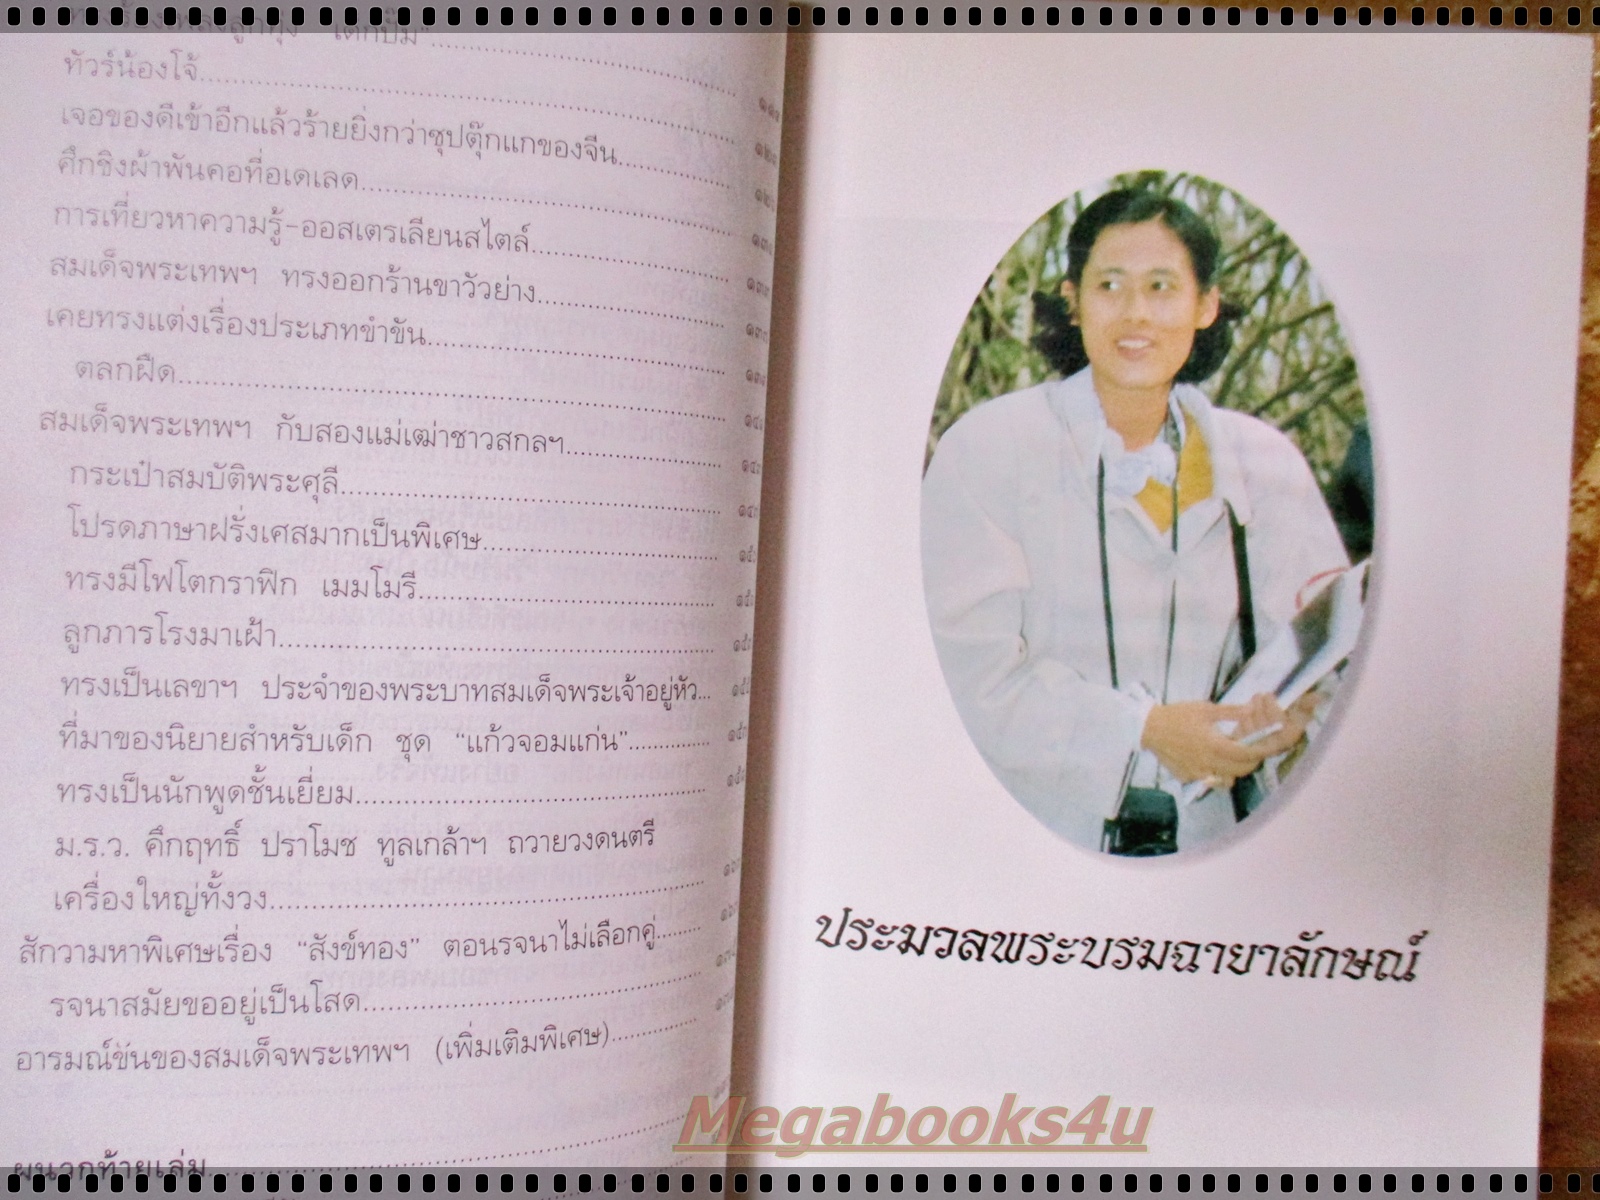 ทรงร้องเพลงลูกทุ่ง "เด็กปั๊ม"
ทัวร์น้องโจ้
เจอของดีเข้าอีกแล้วร้ายยิ่งกว่าซุปตุ๊กแกของจีน
ศึกชิงผ้าพันคอที่อเดเลด
การเที่ยวหาความรู้-ออสเตรเลียนสไตล์
สมเด็จพระเทพฯ ทรงออกร้านขาวัวย่าง
เคยทรงแต่งเรื่องประเภทขำขัน
ตลกฝืด
สมเด็จพระเทพฯ กับสองแม่เฒ่าชาวสกลฯ
กระเป๋าสมบัติพระศุลี
โปรดภาษาฝรั่งเศสมากเป็นพิเศษ
ทรงมีโฟโตกราฟิก เมมโมรี
ลูกภารโรงมาเฝ้า
ทรงเป็นเลขาฯ ประจำของพระบาทสมเด็จพระเจ้าอยู่หัว
ที่มาของนิยายสำหรับเด็ก ชุด "แก้วจอมแก่น"
ทรงเป็นนักพูดชั้นเยี่ยม
ม.ร.ว. คึกฤทธิ์ ปราโมช ทูลเกล้าฯ ถวายวงดนตรี
เครื่องใหญ่ทั้งวง
สักวามหาพิเศษเรื่อง "สังข์ทอง" ตอนรจนาไม่เลือกคู่
รจนาสมัยขออยู่เป็นโสด
อารมณ์ขันของสมเด็จพระเทพฯ (เพิ่มเติมพิเศษ)
ผนวกท้ายเล่ม
ประมวลพระบรมฉายาลักษณ์
Megabooks4u